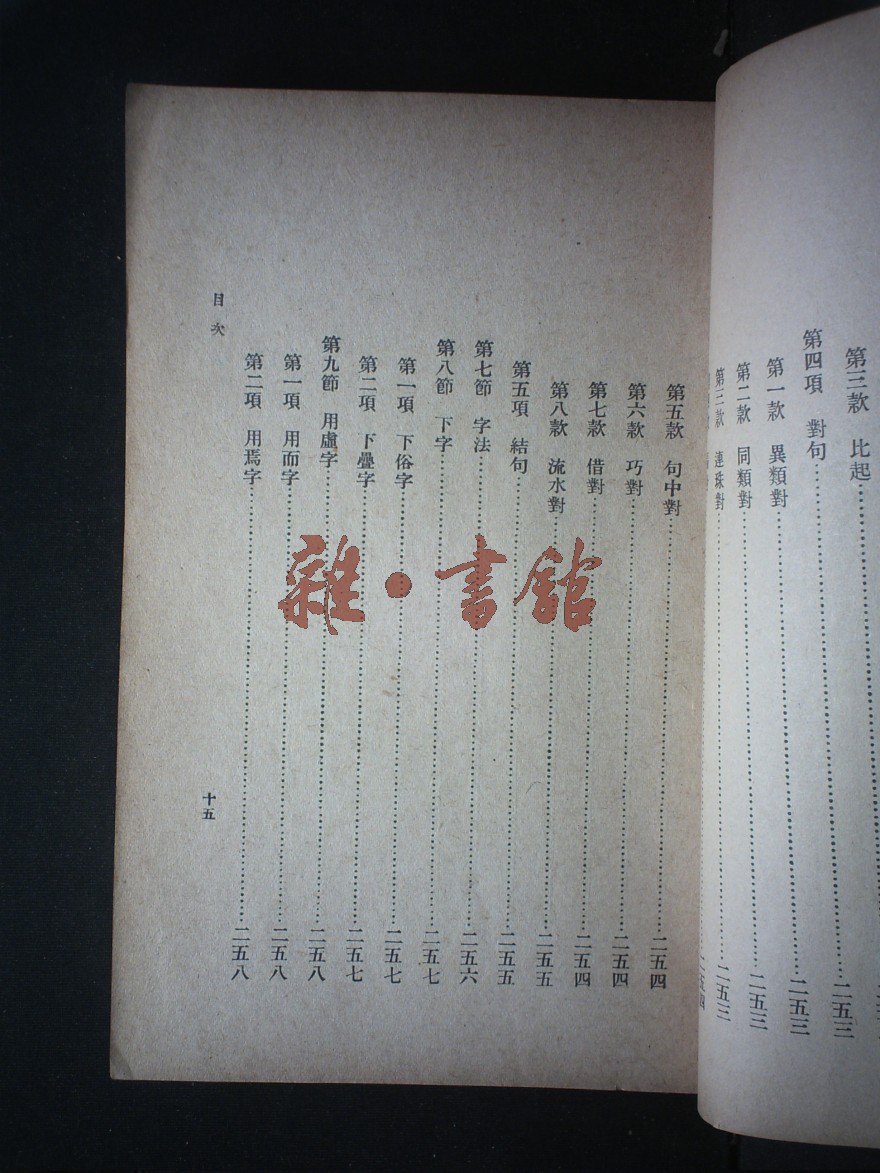 第三款　比起…………二五三
第四項　對句…………二五三
第一款　異類對…………二五三
第二款　同類對…………二五三
第三款　連珠對…………二五三
二五四
第五款　句中對…………二五四
第六款　巧對…………二五四
第七款　借對…………二五四
第八款　流水對…………二五五
第五項　結句…………二五五
第七節　字法…………二五六
第八節　下字…………二五七
第一項　下俗字…………二五七
第二項　下疊字…………二五七
第九節　用虛字…………二五八
第一項　用而字…………二五八
第二項　用焉字…………二五八
目次
十五
雜·書館